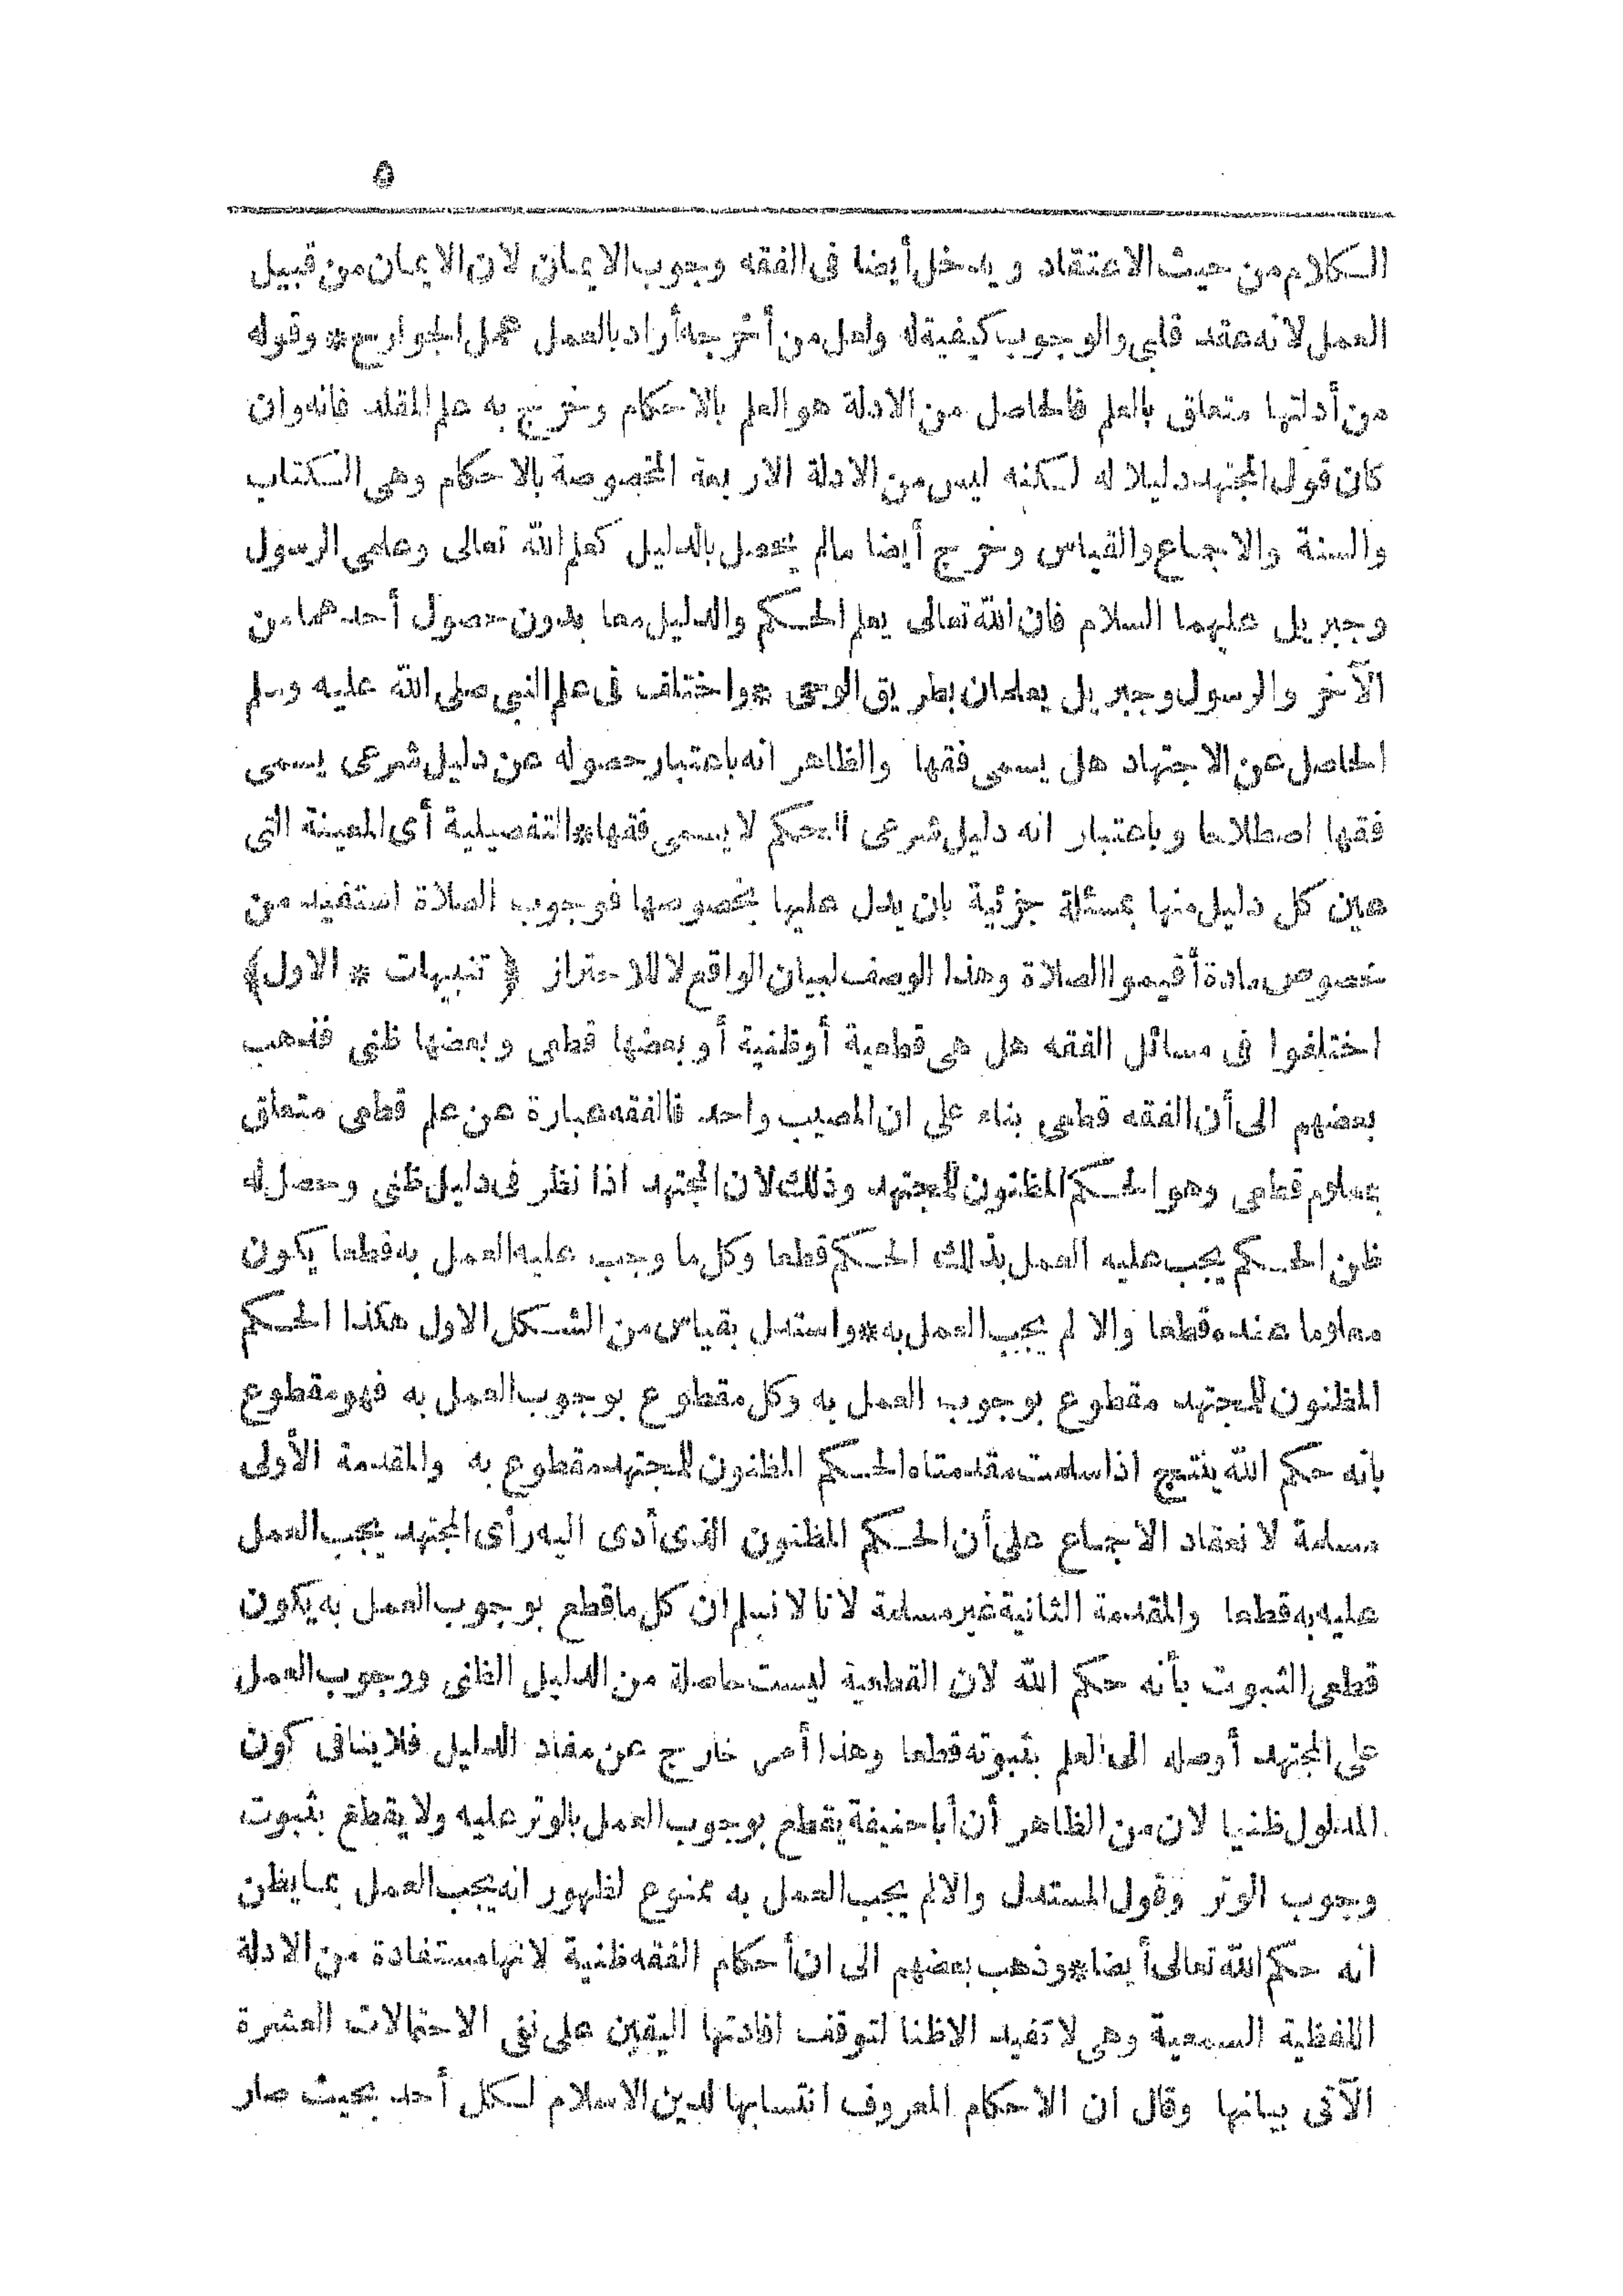 ٥
الكلام من حيث الاعتقاد ويدخل أيضا فى الفقه وجوب الايمان لان الايمان من قبيل
العمل لانه عقد قلبى والوجوب كيفية له ولعل من أخرجه أراد بالعمل عمل الجوارح * وقوله
من أدلتها متعلق بالعلم فالحاصل من الادلة هو العلم بالاحكام وخرج به علم المقلد فانه وان
كان قول المجتهد دليلا له لكنه ليس من الادلة الاربعة المخصوصة بالاحكام وهى الكتاب
والسنة والاجماع والقياس وخرج أيضا مالم يحصل بالدليل كعلم الله تعالى وعلمى الرسول
وجبريل عليهما السلام فان الله تعالى يعلم الحكم والدليل معا بدون حصول أحدهما من
الآخر والرسول وجبريل يعلمان بطريق الوحى * واختلف فى علم النبى صلى الله عليه وسلم
الحاصل عن الاجتهاد هل يسمى فقها والظاهر انه باعتبار حصوله عن دليل شرعى يسمى
فقها اصطلاحا وباعتبار انه دليل شرعى للحكم لا يسمى فقها * التفصيلية أى المعينة التى
عين كل دليل منها بمسئلة جزئية بان يدل عليها بخصوصها فوجوب الصلاة استفيد من
خصوص مادة أقيموا الصلاة وهذا الوصف لبيان الواقع لا للاحتراز ﴿ تنبيهات * الاول ﴾
اختلفوا فى مسائل الفقه هل هى قطعية أو ظنية أو بعضها قطعى وبعضها ظنى فذهب
بعضهم الى أن الفقه قطعى بناء على ان المصيب واحد فالفقه عبارة عن علم قطعى متعلق
بمعلوم قطعى وهو الحكم المظنون للمجتهد وذلك لان المجتهد اذا نظر فى دليل ظنى وحصل له
ظن الحكم يجب عليه العمل بذلك الحكم قطعا وكل ما وجب عليه العمل به قطعا يكون
معلوما عنده قطعا والا لم يجب العمل به * واستدل بقياس من الشكل الاول هكذا الحكم
المظنون للمجتهد مقطوع بوجوب العمل به وكل مقطوع بوجوب العمل به فهو مقطوع
بانه حكم الله ينتج اذا سلمت مقدمتاه الحكم المظنون للمجتهد مقطوع به والمقدمة الأولى
مسلمة لانعقاد الاجماع على أن الحكم المظنون الذى أدى اليه رأى المجتهد يجب العمل
عليه به قطعا والمقدمة الثانية غير مسلمة لانا لا نسلم ان كل ما قطع بوجوب العمل به يكون
قطعى الثبوت بأنه حكم الله لان القطعية ليست حاصلة من الدليل الظنى ووجوب العمل
على المجتهد أوصله الى العلم بثبوته قطعا وهذا أمر خارج عن مفاد الدليل فلا ينافى كون
المدلول ظنيا لان من الظاهر أن أبا حنيفة يقطع بوجوب العمل بالوتر عليه ولا يقطع بثبوت
وجوب الوتر وقول المستدل والا لم يجب العمل به ممنوع لظهور انه يجب العمل بما يظن
انه حكم الله تعالى أيضا * وذهب بعضهم الى ان أحكام الفقه ظنية لانها مستفادة من الادلة
اللفظية السمعية وهى لا تفيد الا ظنا لتوقف افادتها اليقين على نفى الاحتمالات العشرة
الآتى بيانها وقال ان الاحكام المعروف انتسابها لدين الاسلام لكل أحد بحيث صار